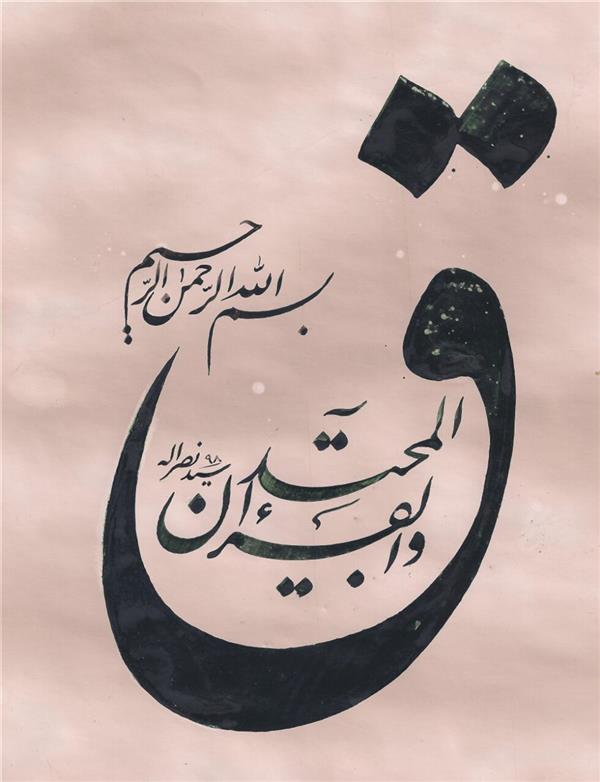 بسم الله الرحمن الرحیم
ق
والقرءان المجید
سید نصراله ۹۸